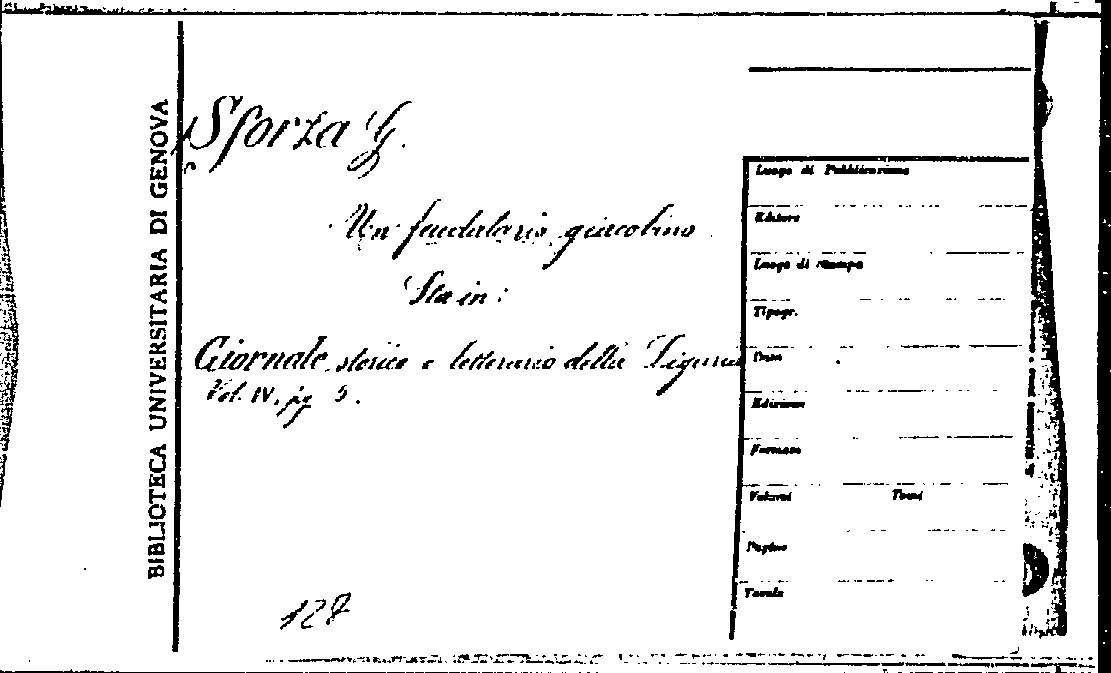 BIBLIOTECA UNIVERSITARIA DI GENOVA
Sforza G.
Un feudatario giacobino
Sta in:
Giornale storico e letterario della Liguria
Vol. IV. pg 5.
128
Luogo di Pubblicazione
Editore
Luogo di stampa
Tipogr.
Data
Edizione
Formato
Volumi Tomi
Pagine
Tavole